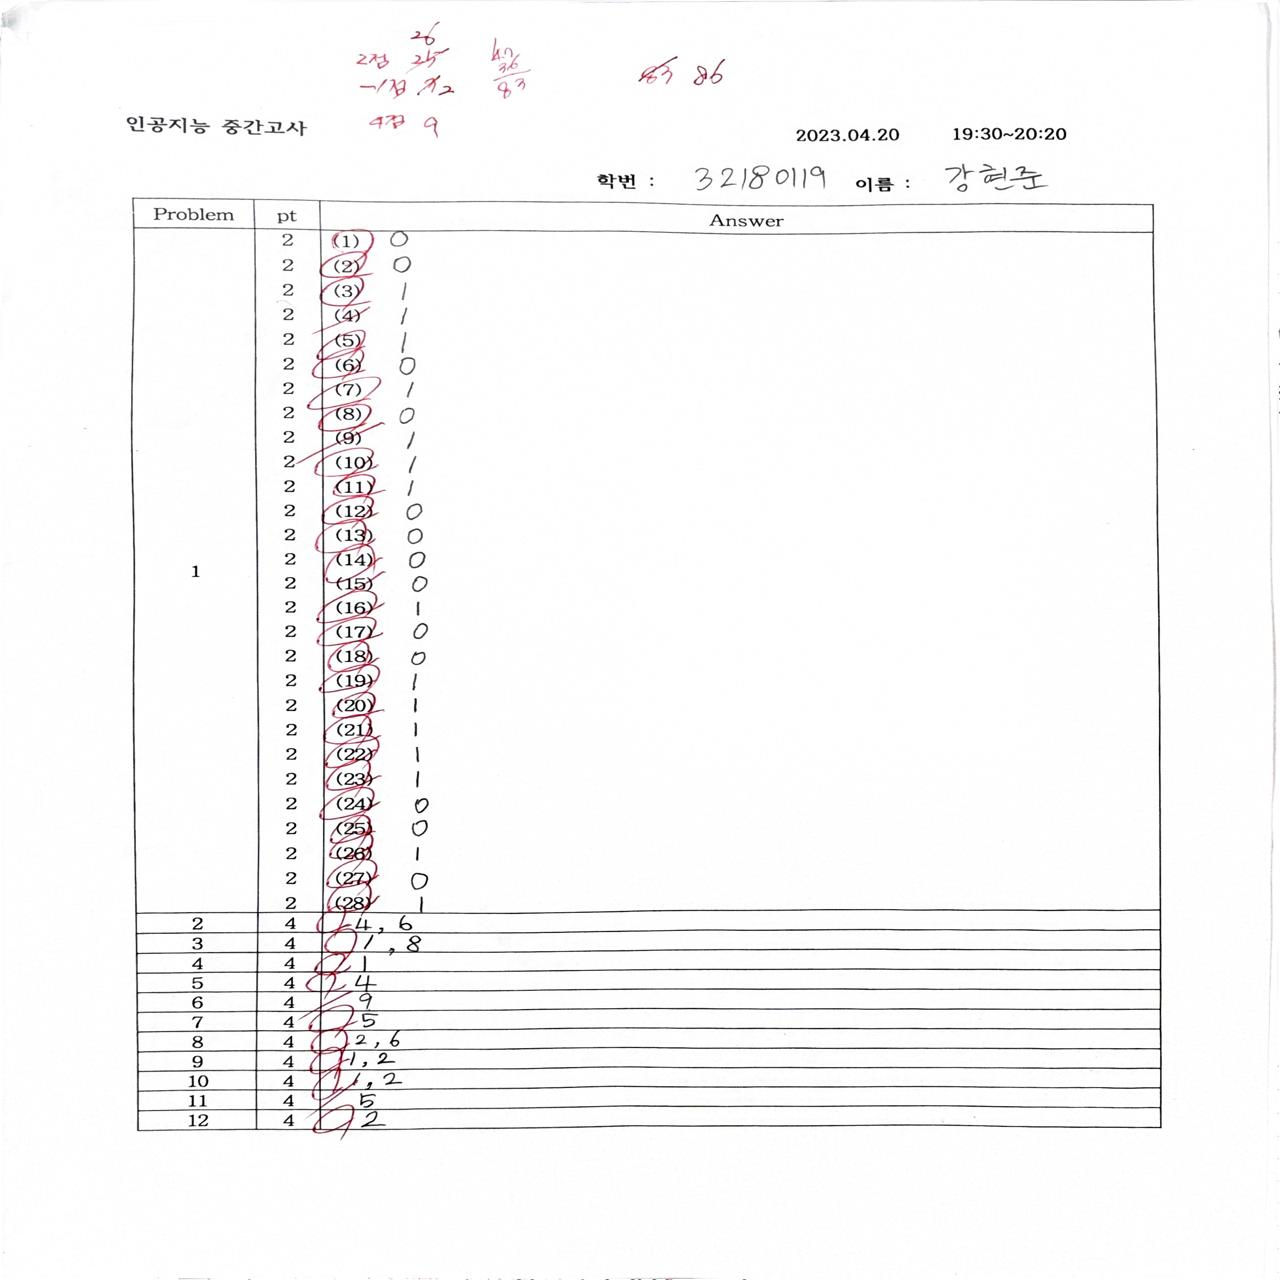 26
2점 25
-1점 2
4점 9
47
36
83
83 86
인공지능 중간고사
2023.04.20 19:30~20:20
학번 : 32180119 이름 : 강현준
Problem pt Answer
1
2 (1) 0
2 (2) 0
2 (3) 1
2 (4) 1
2 (5) 1
2 (6) 0
2 (7) 1
2 (8) 0
2 (9) 1
2 (10) 1
2 (11) 1
2 (12) 0
2 (13) 0
2 (14) 0
2 (15) 0
2 (16) 1
2 (17) 0
2 (18) 0
2 (19) 1
2 (20) 1
2 (21) 1
2 (22) 1
2 (23) 1
2 (24) 0
2 (25) 0
2 (26) 1
2 (27) 0
2 (28) 1
2 4 4, 6
3 4 1, 8
4 4 1
5 4 4
6 4 9
7 4 5
8 4 2, 6
9 4 1, 2
10 4 1, 2
11 4 5
12 4 2